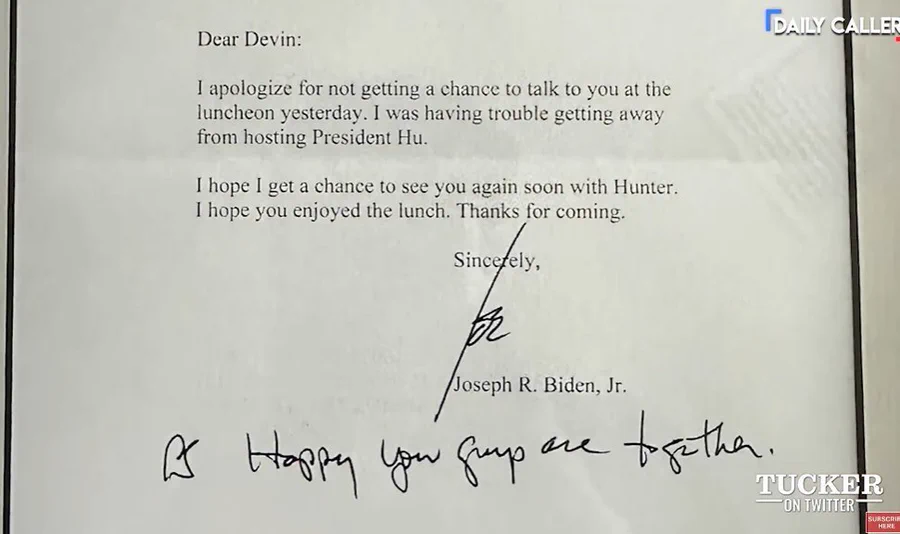 DAILY CALLER
Dear Devin:
I apologize for not getting a chance to talk to you at the
luncheon yesterday. I was having trouble getting away
from hosting President Hu.
I hope I get a chance to see you again soon with Hunter.
I hope you enjoyed the lunch. Thanks for coming.
Sincerely,
Joseph R. Biden, Jr.
PS Happy you guys are together.
TUCKER
ON TWITTER
SUBSCRIBE
HERE